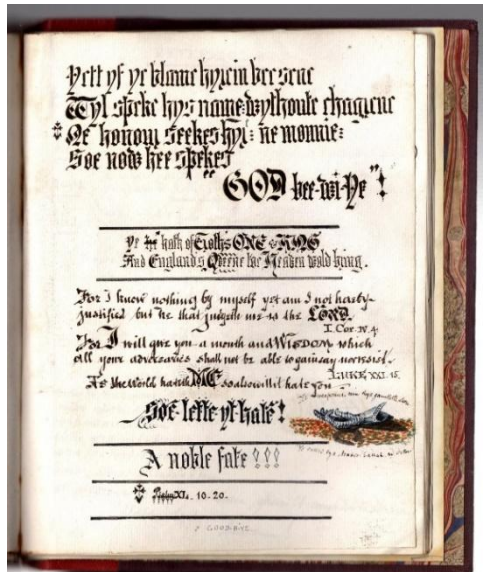 Yett yf ye blame hyrein bee sene
Wyl speke hys name wythoute chagrene
Ne honour seekes hy: ne monnie:
Soe now hee spekes
"GOD bee-wi-Ye"!
Ye hath of Cloths ONE KING
And England's Queene the Heaven would bring.
For I know nothing by myself yet am I not hereby
justified but he that judgeth me is the LORD.
I. Cor. IV. 4.
For I will give you a mouth and WISDOM which
all your adversaries shall not be able to gainsay nor resist.
LUKE XXI. 15.
As the World hateth ME so also will it hate you
Soe lette yt hate!
A noble fate!!!
XL. 10. 20.
GOOD-BYE